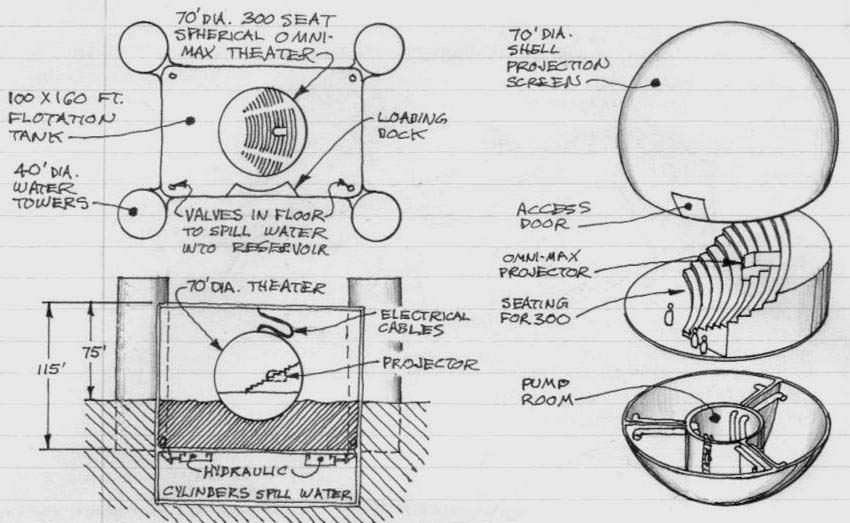 70' DIA. 300 SEAT
SPHERICAL OMNI-
MAX THEATER
100 X 160 FT.
FLOTATION
TANK
LOADING
DOCK
40' DIA.
WATER
TOWERS
VALVES IN FLOOR
TO SPILL WATER
INTO RESERVOIR
70' DIA. THEATER
ELECTRICAL
CABLES
75'
115'
PROJECTOR
HYDRAULIC
CYLINDERS SPILL WATER
70' DIA.
SHELL
PROJECTION
SCREEN
ACCESS
DOOR
OMNI-MAX
PROJECTOR
SEATING
FOR 300
PUMP
ROOM